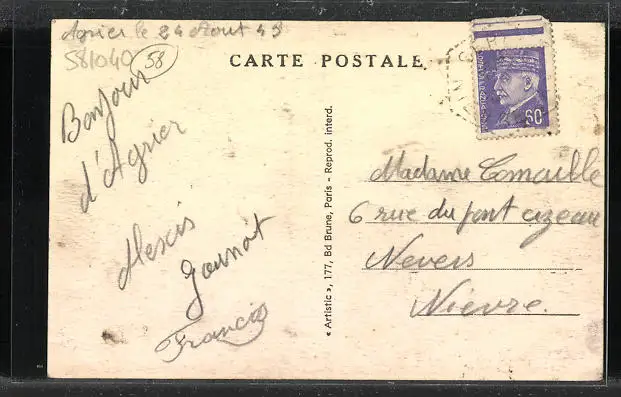 Agrier le 24 Aout 43
581040 58
CARTE POSTALE
Bonjour
d'Agrier
Alexis
Jaunat
Francis
« Artistic », 177, Bd Brune, Paris - Reprod. interd.
60
Madame Comaille
6 rue du pont cizeau
Nevers
Nievre.